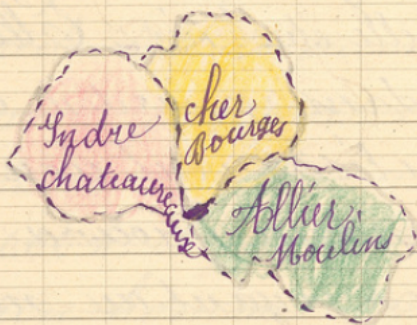 Indre
chateaureaux
cher
Bourges
Allier
Moulins